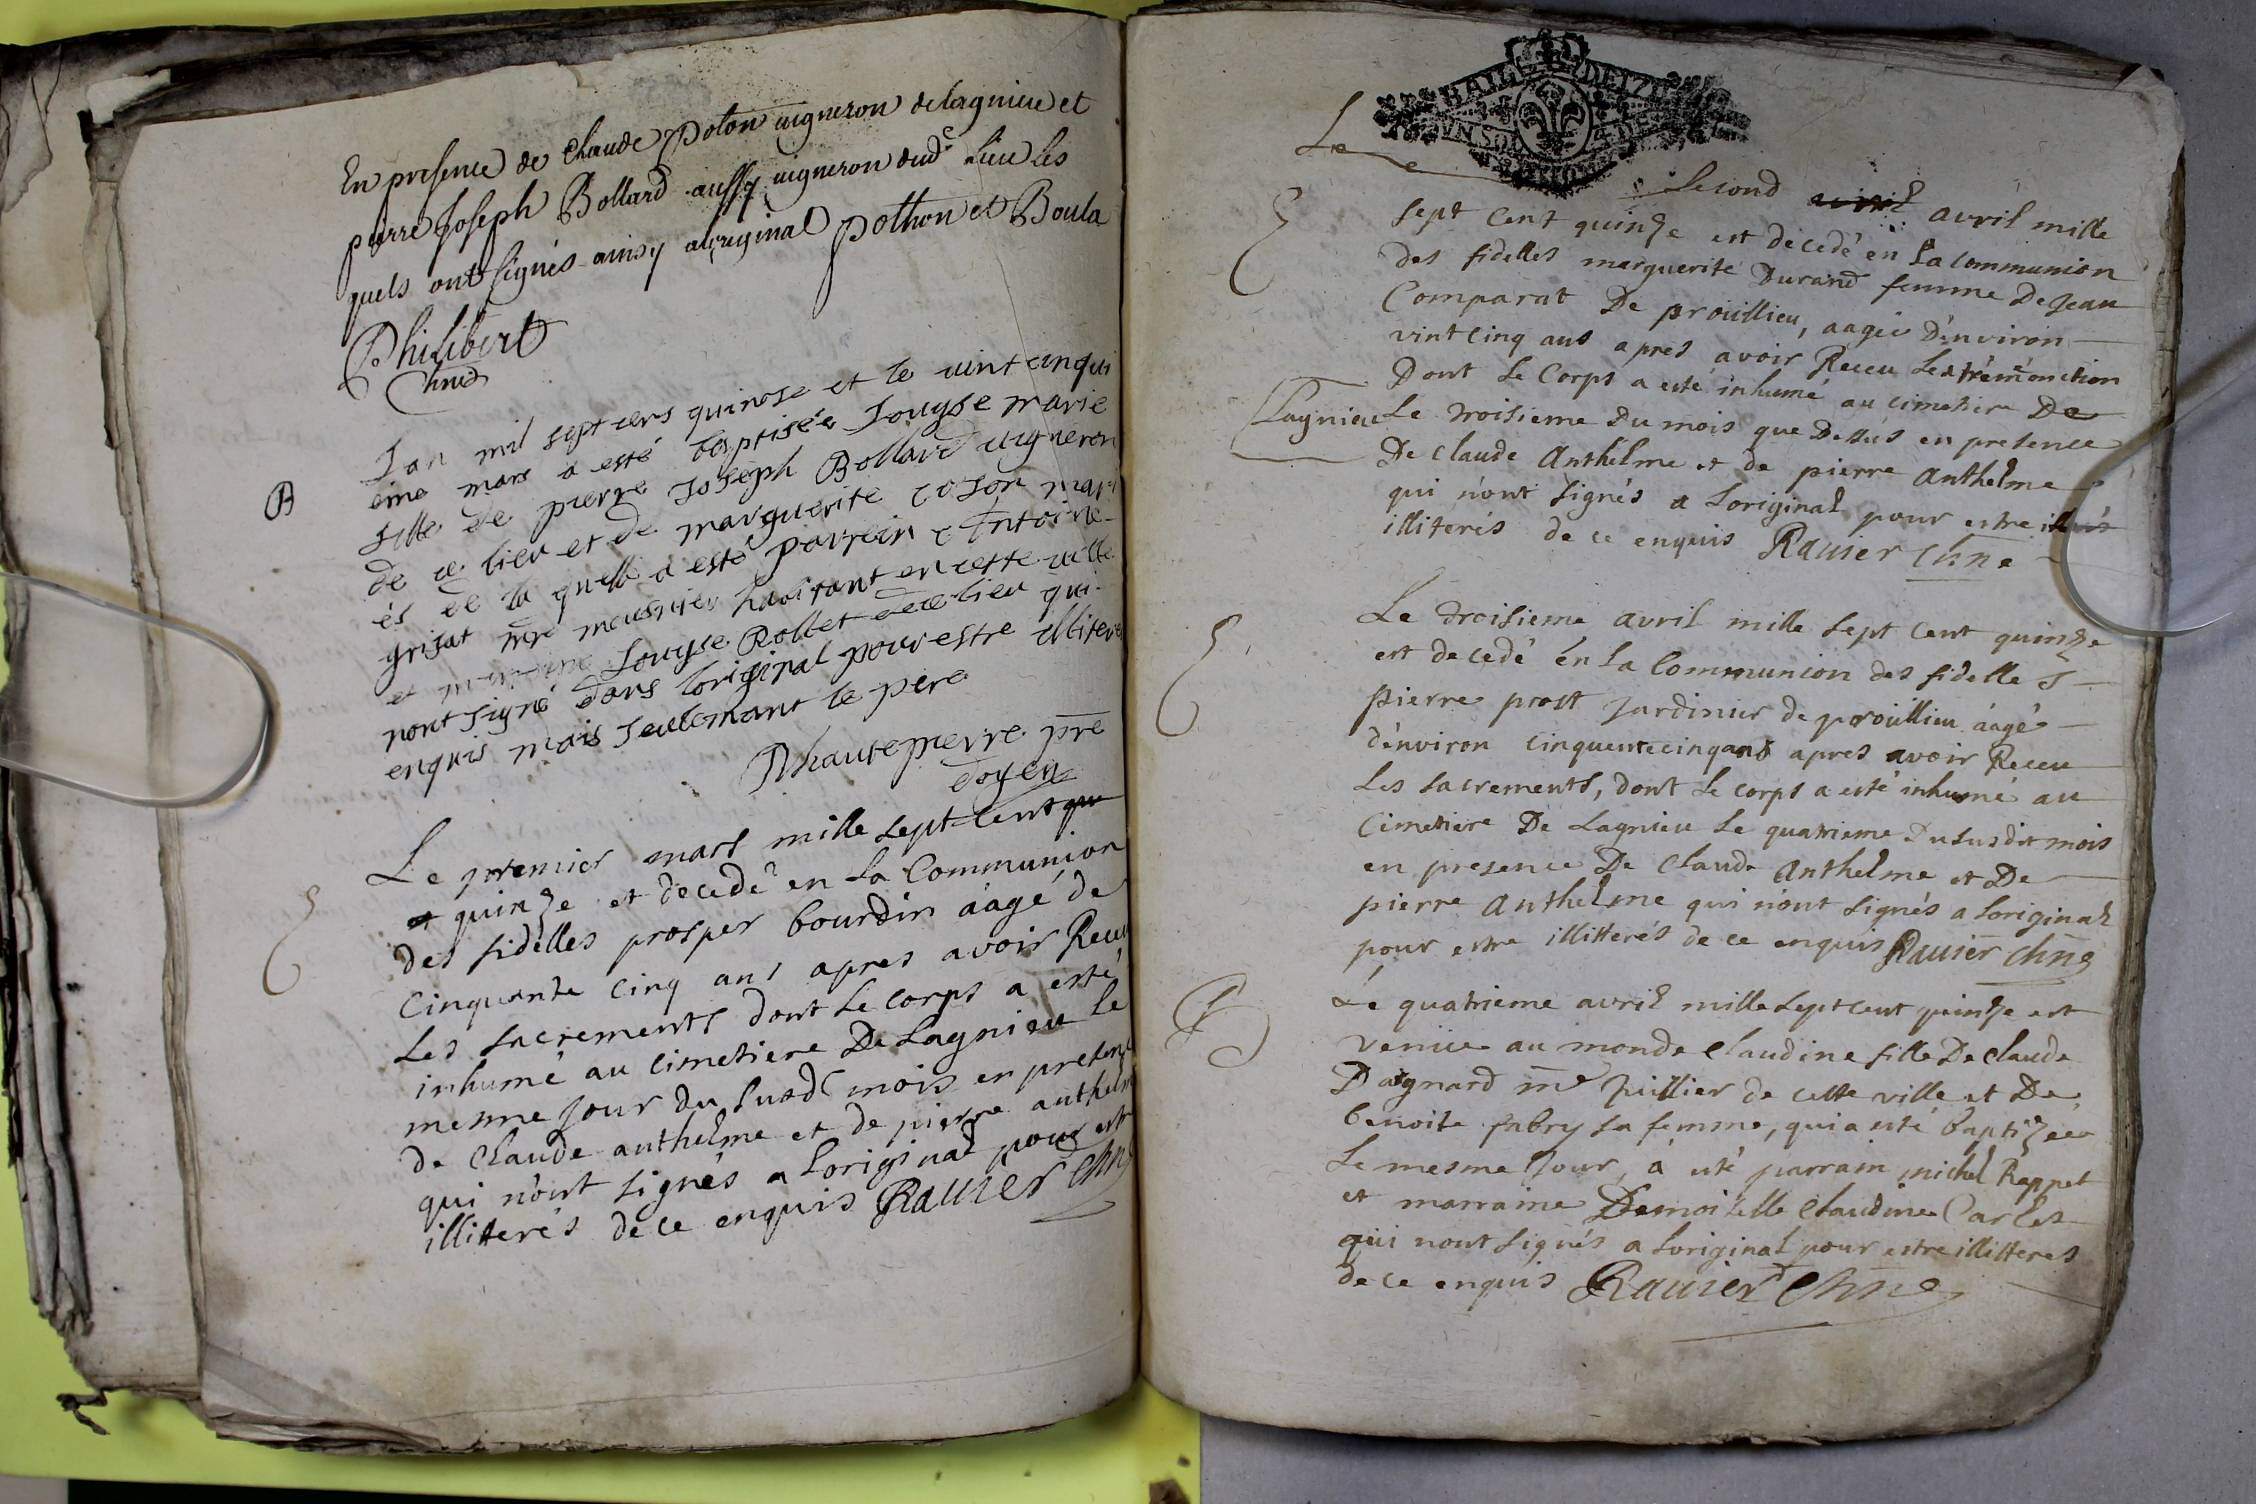 En presence de Claude Poton vigneron de lagnieu et
pierre Joseph Bollard aussy vigneron dud lieu les
quels ont signés ainsy a loriginal pothon et Boula
Philibert
Chne
B
Lan mil sept cens quinose et le vint cinqui
eme mars a esté baptisée Louyse marie
fille de pierre Joseph Bollard vigneron
de ce lieu et de marguerite coson mari
és de la quelle a esté parrein Entoine
grisat mre meusnier habitant en cette ville
et mareine Louyse Rollet de ce lieu qui
nont signé dans loriginal pour estre illiteres
enquis mais seulemant le pere
Dhautepierre pre
doyen
Le premier mars mille sept cent qu
et quinze et decedé en la Communion
des fidelles prosper bourdin áagé de
Cinquante cinq ans apres avoir Receu
Les sacrements dont le corps a esté
inhumé au cimetiere De Lagnieu le
mesme jour du susd mois en presence
de Claude anthelme et de pierre anthelme
qui n'ont signés a Loriginal pour estre
illitterés de ce enquis Rauier Chne
BAIL DE 17
UN SOL
Le
second avril avril mille
sept cent quinze est decedé en La communion
des fidelles marguerite Durand femme De Jean
Comparat De proüillieu, aagée D'environ
vint cinq ans apres avoir Receu Lextrémonction
Dont Le Corps a esté inhumé au cimetiere De
Lagnieu Le troisieme Du mois que Dessus en presence
De Claude Anthelme et de pierre anthelme
qui n'ont signés a Loriginal pour estre
illiterés de ce enquis Rauier Chne
Le troisieme avril mille sept cent quinze
est decedé en La Communion des fidelle S
pierre prost Jardinier de proüillieu áagé
d'environ cinquente cinq ans apres avoir Receu
Les sacrements, dont le corps a esté inhumé au
Cimetiere De Lagnieu le quatrieme Du susdit mois
en presence De Claude Anthelme et De
pierre Anthelme qui n'ont signés a Loriginal
pour estre illitterés de ce enquis Rauier Chne
Le quatrieme avril mille sept cent quinze est
venüe au monde Claudine fille De Claude
Dagnard me Juillier de cette ville et De
benoite fabry sa femme, qui a esté baptizée
Le mesme Jour, a eté parrain michel Rappet
et marraine Demoiselle Claudine Carlet
qui nont signés a Loriginal pour estre illitteres
de ce enquis Rauier Chne